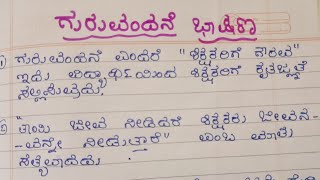 ಗುರುವಂದನೆ ಭಾಷಣ
1) ಗುರುವಂದನೆ ಎಂದರೆ "ಶಿಕ್ಷಕರಿಗೆ ಗೌರವ"
ಇದು ವಿದ್ಯಾರ್ಥಿಯಿಂದ ಶಿಕ್ಷಕರಿಗೆ ಕೃತಜ್ಞತೆ
ಸಲ್ಲಿಸುವುದು.
2) "ತಾಯಿ ಜೀವ ನೀಡಿದರೆ ಶಿಕ್ಷಕರು ಜೀವನ-
-ವನ್ನೇ ನೀಡುತ್ತಾರೆ" ಎಂಬ ಮಾತು
ಸತ್ಯವಾದುದು.